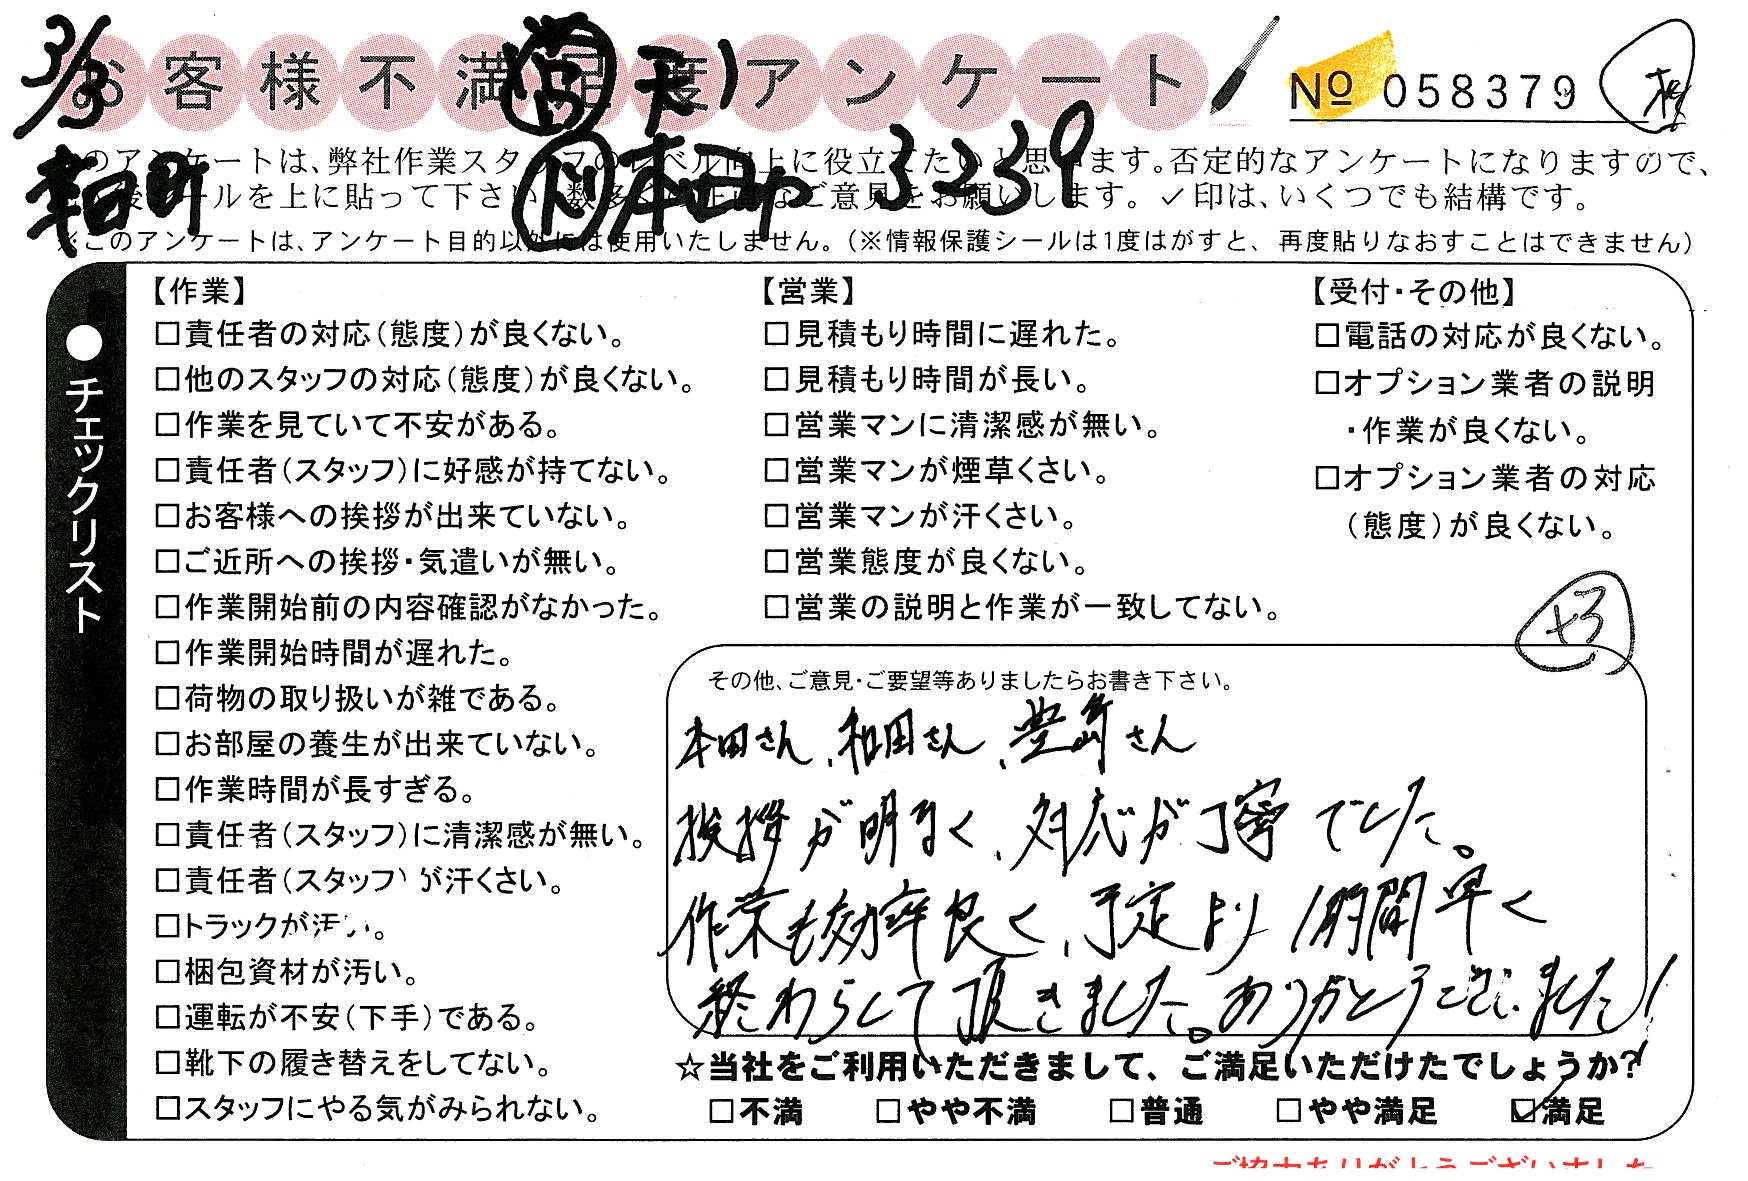 3/3
お客様不満足度アンケート
№ 058379
幸田町
本田 3-239
このアンケートは、弊社作業スタッフのレベル向上に役立てたいと思います。否定的なアンケートになりますので、
後シールを上に貼って下さい。数多くの正直なご意見をお願いします。✓印は、いくつでも結構です。
※このアンケートは、アンケート目的以外には使用いたしません。(※情報保護シールは1度はがすと、再度貼りなおすことはできません)
●チェックリスト
【作業】
□責任者の対応(態度)が良くない。
□他のスタッフの対応(態度)が良くない。
□作業を見ていて不安がある。
□責任者(スタッフ)に好感が持てない。
□お客様への挨拶が出来ていない。
□ご近所への挨拶・気遣いが無い。
□作業開始前の内容確認がなかった。
□作業開始時間が遅れた。
□荷物の取り扱いが雑である。
□お部屋の養生が出来ていない。
□作業時間が長すぎる。
□責任者(スタッフ)に清潔感が無い。
□責任者(スタッフ)が汗くさい。
□トラックが汚い。
□梱包資材が汚い。
□運転が不安(下手)である。
□靴下の履き替えをしてない。
□スタッフにやる気がみられない。
【営業】
□見積もり時間に遅れた。
□見積もり時間が長い。
□営業マンに清潔感が無い。
□営業マンが煙草くさい。
□営業マンが汗くさい。
□営業態度が良くない。
□営業の説明と作業が一致してない。
【受付・その他】
□電話の対応が良くない。
□オプション業者の説明
・作業が良くない。
□オプション業者の対応
(態度)が良くない。
+3
その他、ご意見・ご要望等ありましたらお書き下さい。
本田さん、和田さん、豊嶋さん
挨拶が明るく、対応が丁寧でした。
作業も効率良く、予定より1時間早く
終わらして頂きました。ありがとうございました!
☆当社をご利用いただきまして、ご満足いただけたでしょうか?
□不満 □やや不満 □普通 □やや満足 ☑満足
ご協力ありがとうございました